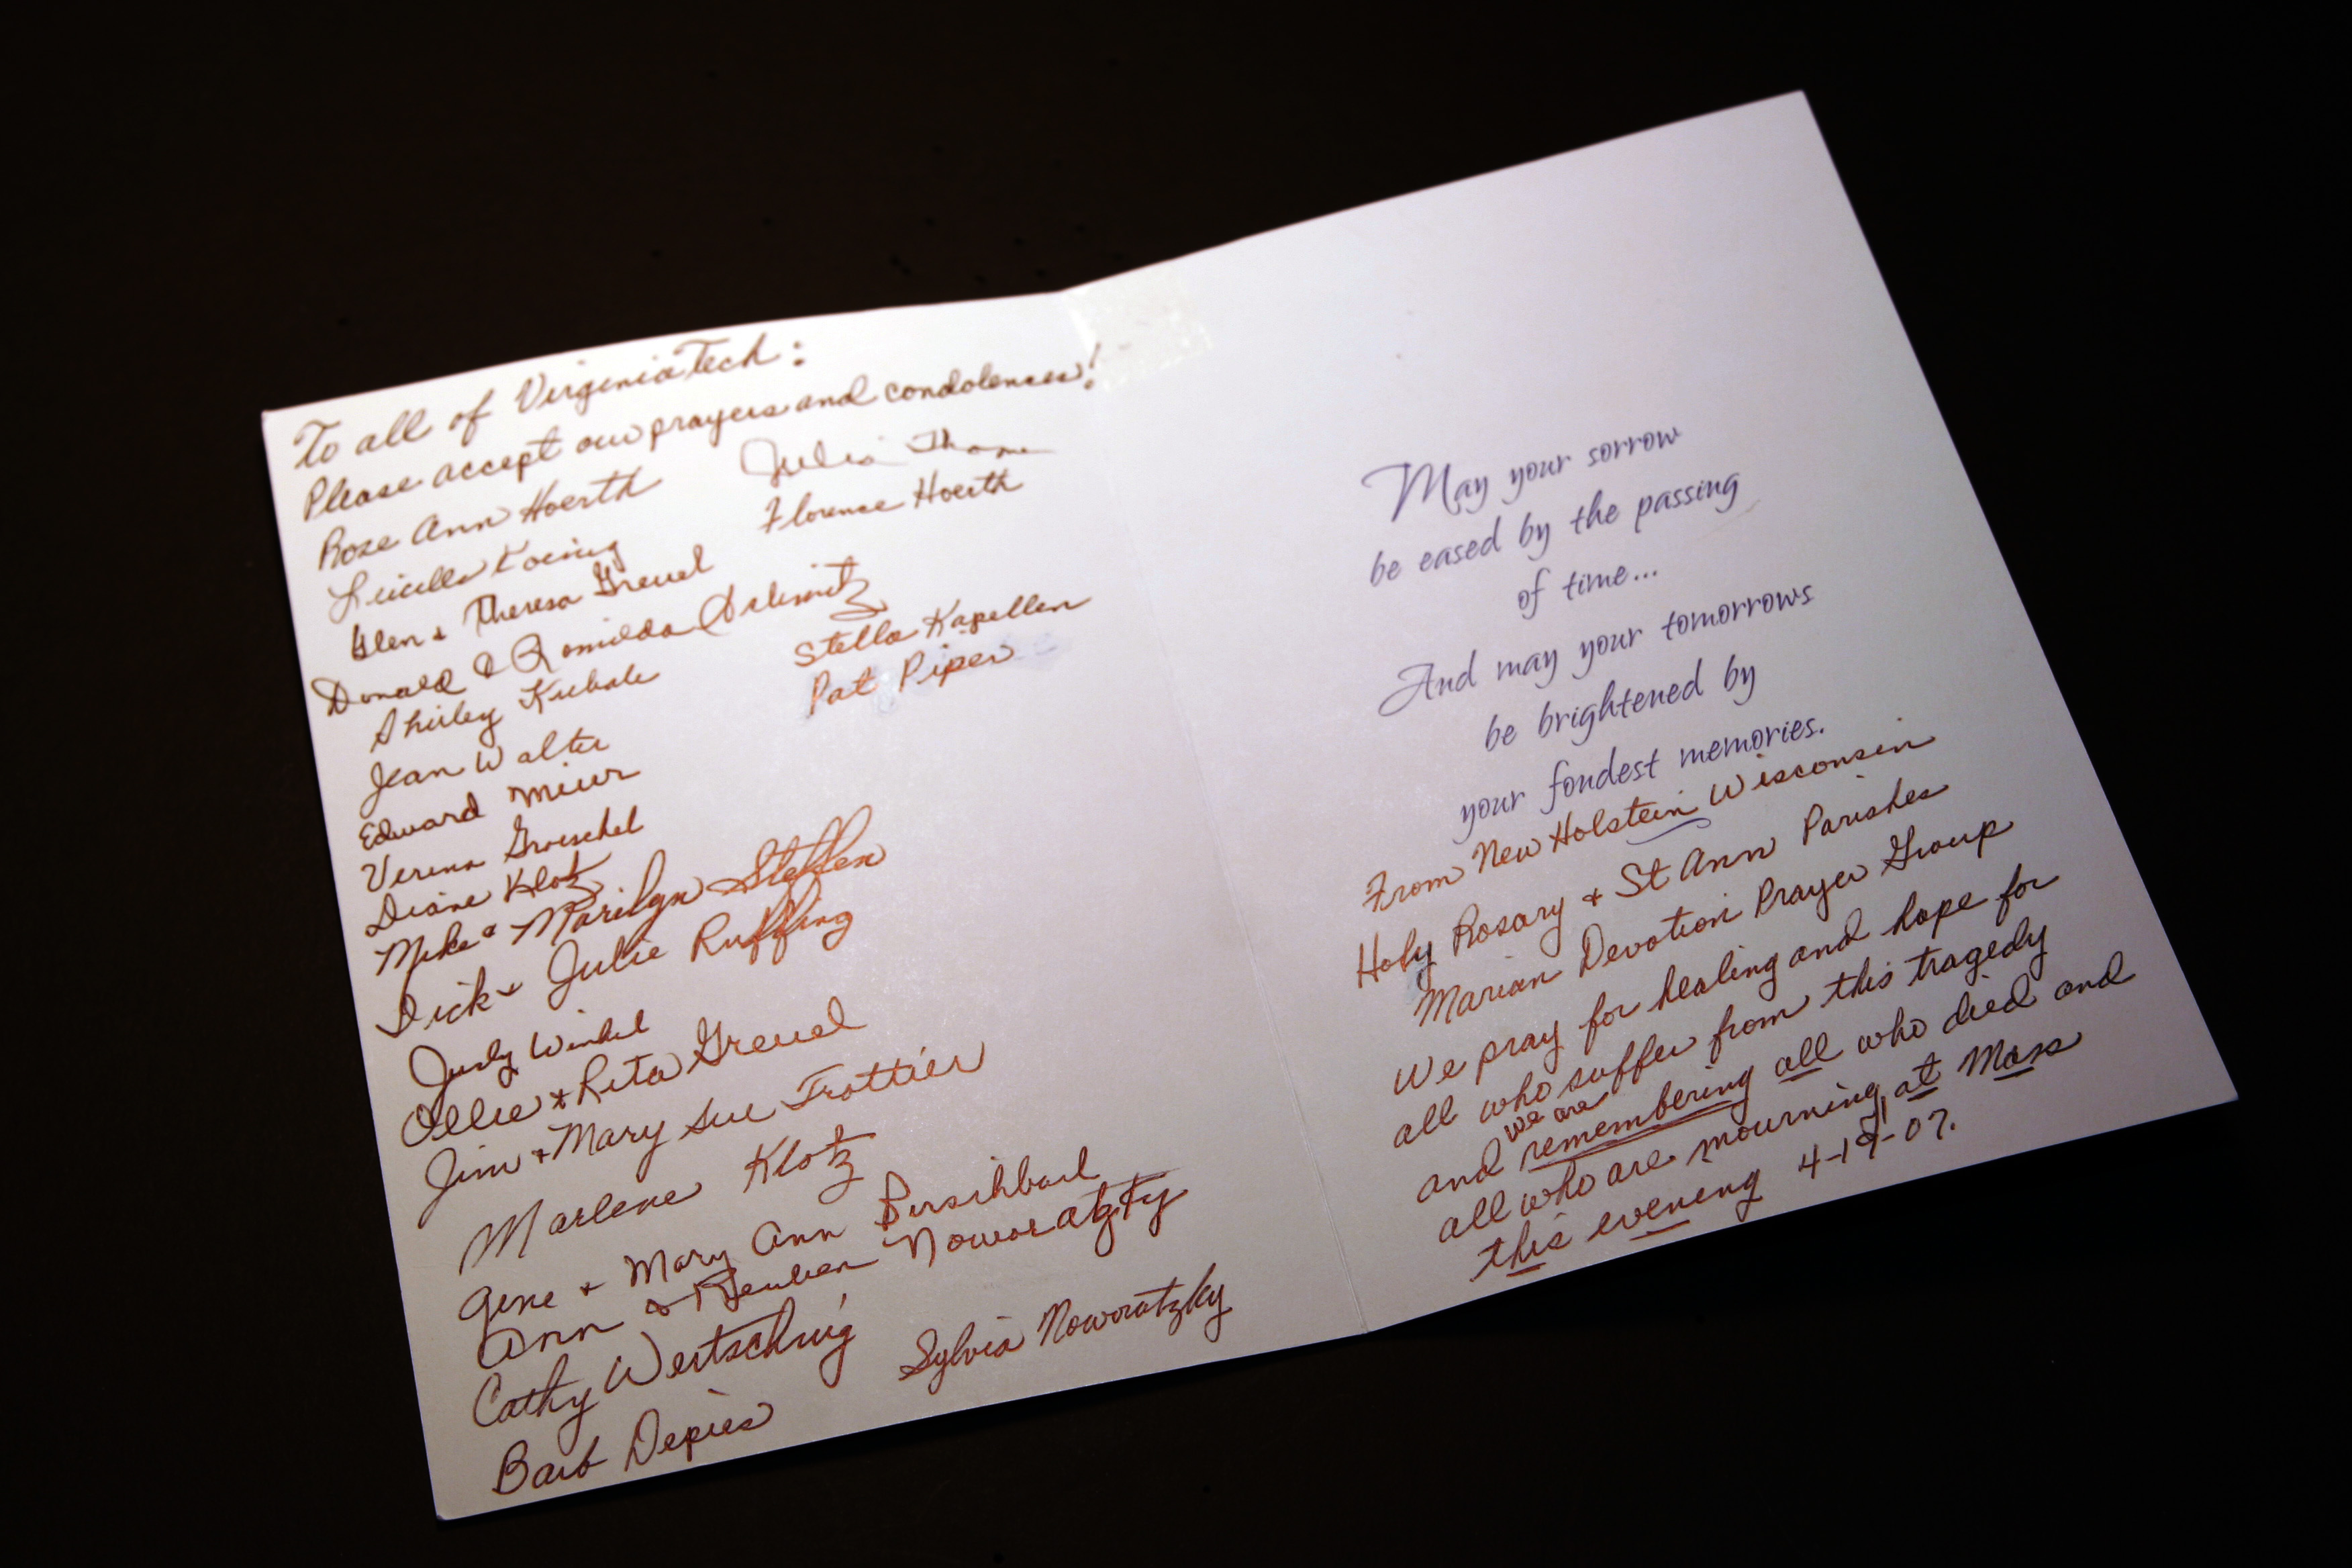 To all of Virginia Tech:
Please accept our prayers and condolences!
Rose Ann Hoerth
Julia
Florence Hoerth
Lucille
Glen & Theresa Greuel
Donald & Romilda
Shirley Kubale
Stella Kapellen
Pat Piper
Jean Walter
Edward Meier
Verena Groeschel
Diane Klotz
Mike & Marilyn Steffen
Dick & Julie Ruffing
Judy Winkel
Ollie & Rita Greuel
Jim & Mary Sue Trottier
Marlene Klotz
Gene & Mary Ann
Ann & Reuben Noworatzky
Cathy Wertschnig
Sylvia Noworatzky
Barb Depies
May your sorrow
be eased by the passing
of time...
And may your tomorrows
be brightened by
your fondest memories.
From New Holstein Wisconsin
Holy Rosary & St Ann Parishes
Marian Devotion Prayer Group
We pray for healing and hope for
all who suffer from this tragedy
and we are remembering all who died and
all who are mourning, at Mass
this evening 4-19-07.